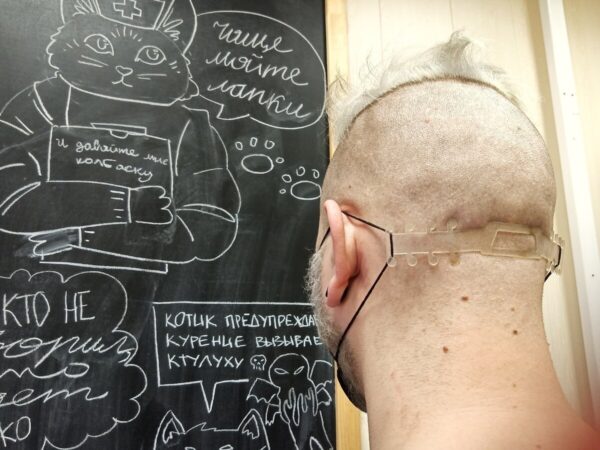 Чаще
мойте
лапки
и давайте мне
колбаску
КТО НЕ
КО
КОТИК ПРЕДУПРЕЖДАЕ
КУРЕНИЕ ВЫЗЫВАЕ
КТУЛУХУ